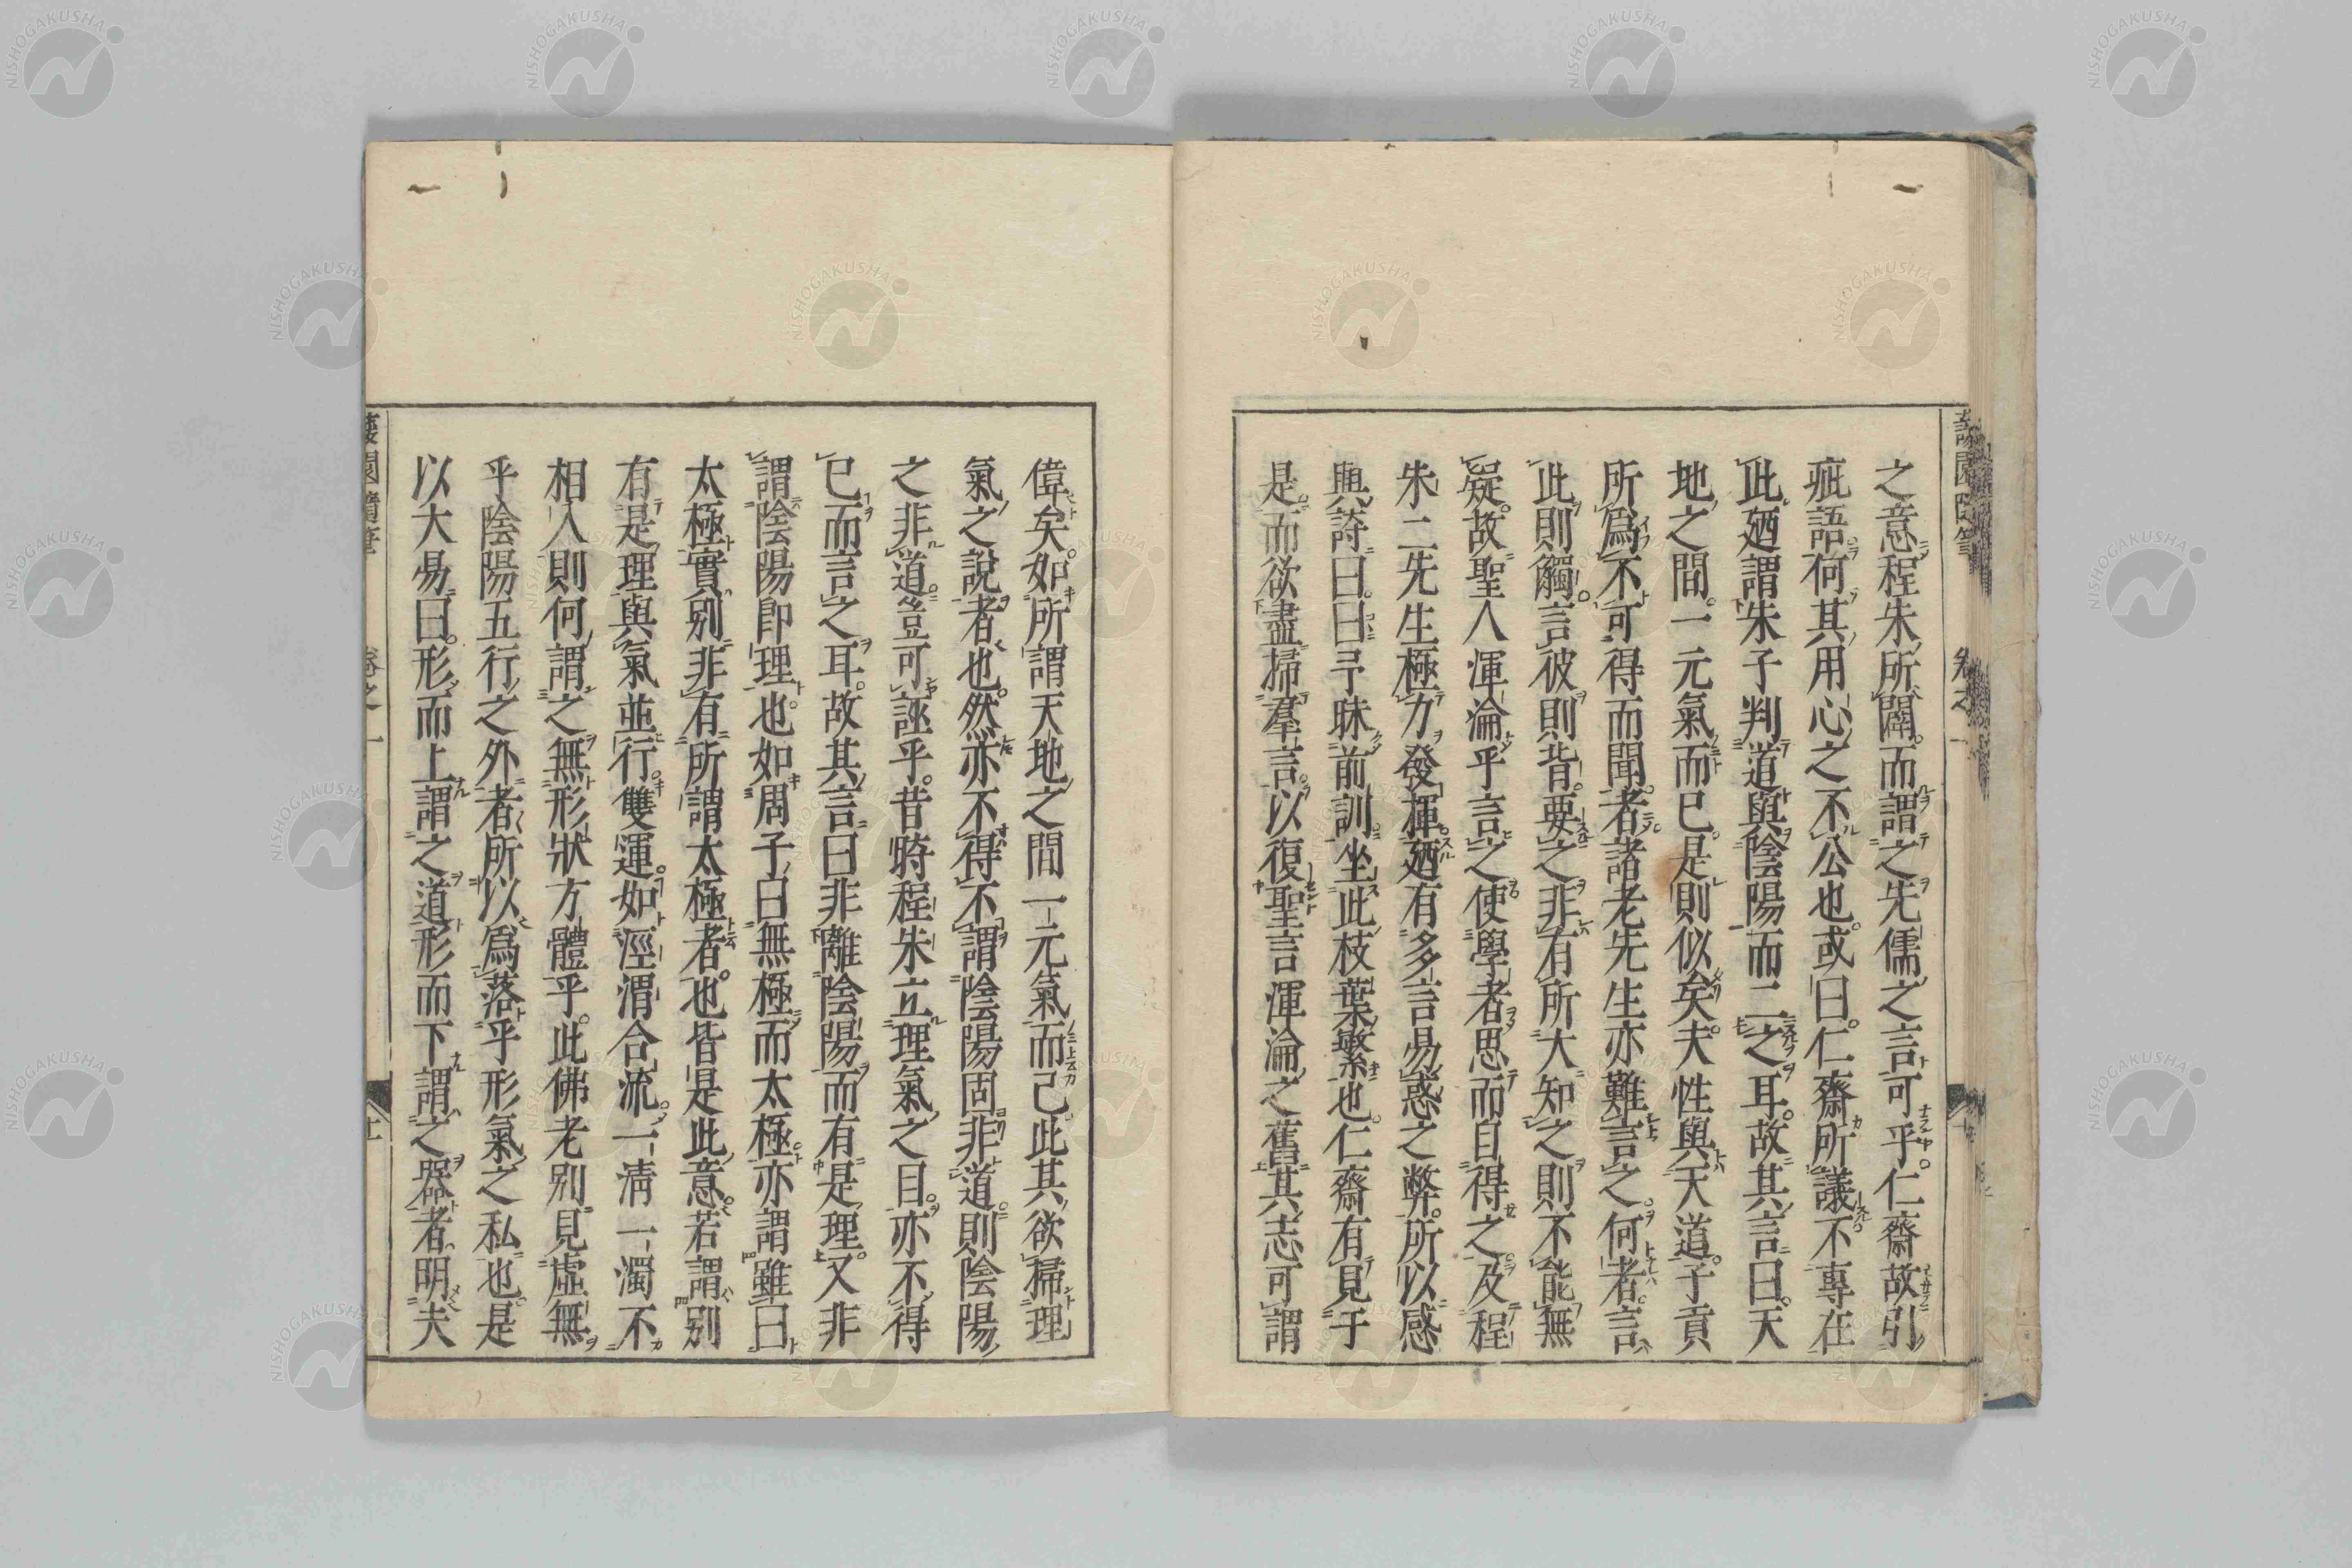 之意程朱所闢而謂之先儒之言可乎仁齋故引
疵語何其用心之不公也或曰仁齋所議不專在
此廼謂朱子判道與陰陽而二之耳故其言曰天
地之間一元氣而已是則似矣夫性與天道子貢
所爲不可得而聞者諸老先生亦難言之何者言
此則觸言彼則背要之非有所大知之則不能無
疑故聖人渾淪乎言之使學者思而自得之及程
朱二先生極力發揮廼有多言易惑之弊所以感
興詩曰曰予昧前訓坐此枝葉繁也仁齋有見于
是而欲盡掃羣言以復聖言渾淪之舊其志可謂
偉矣如所謂天地之間一元氣而已此其欲掃理
氣之說者也然亦不得不謂陰陽固非道則陰陽
之非道豈可誣乎昔時程朱立理氣之目亦不得
已而言之耳故其言曰非離陰陽而有是理又非
謂陰陽即理也如周子曰無極而太極亦謂雖曰
太極實別非有所謂太極者也皆是此意若謂別
有是理與氣並行雙運如涇渭合流一淸一濁不
相入則何謂之無形狀方體乎此佛老別見虛無
乎陰陽五行之外者所以爲落乎形氣之私也是
以大易曰形而上謂之道形而下謂之器者明夫
蘐園隨筆 卷之一
NISHOGAKUSHA